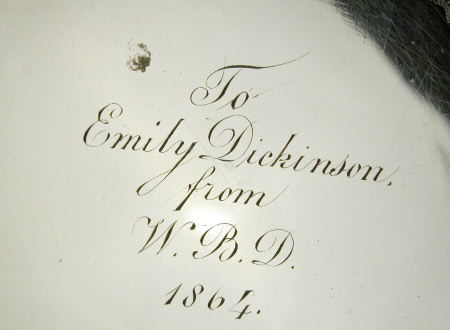 To
Emily Dickinson.
from
W. B. D.
1864.